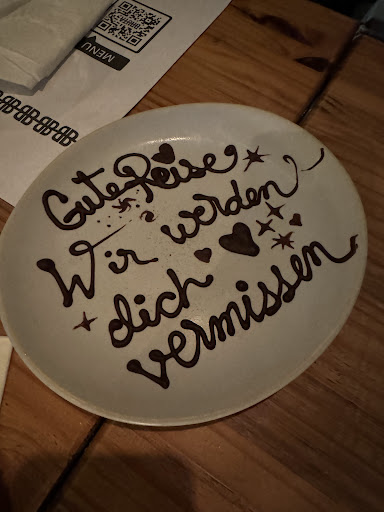 MENU
Gute Reise
Wir werden
dich
vermissen